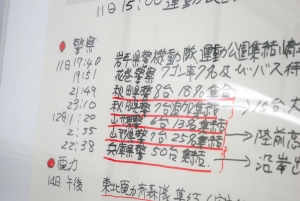 11日15:00 運動
● 警察
11日17:40 岩手県警機動隊 運動公園集結
19:51 花巻警察 ワゴン車7名及びバス
21:49 秋田県8台18名集合
23:10 秋田県7台 集結
12日1:20 山形県6台13名集結
2:55 山形県8台25名集結 陸前高
22:38 兵庫県50台集結 沿岸
● 電力
14日午後 東北電力 集結